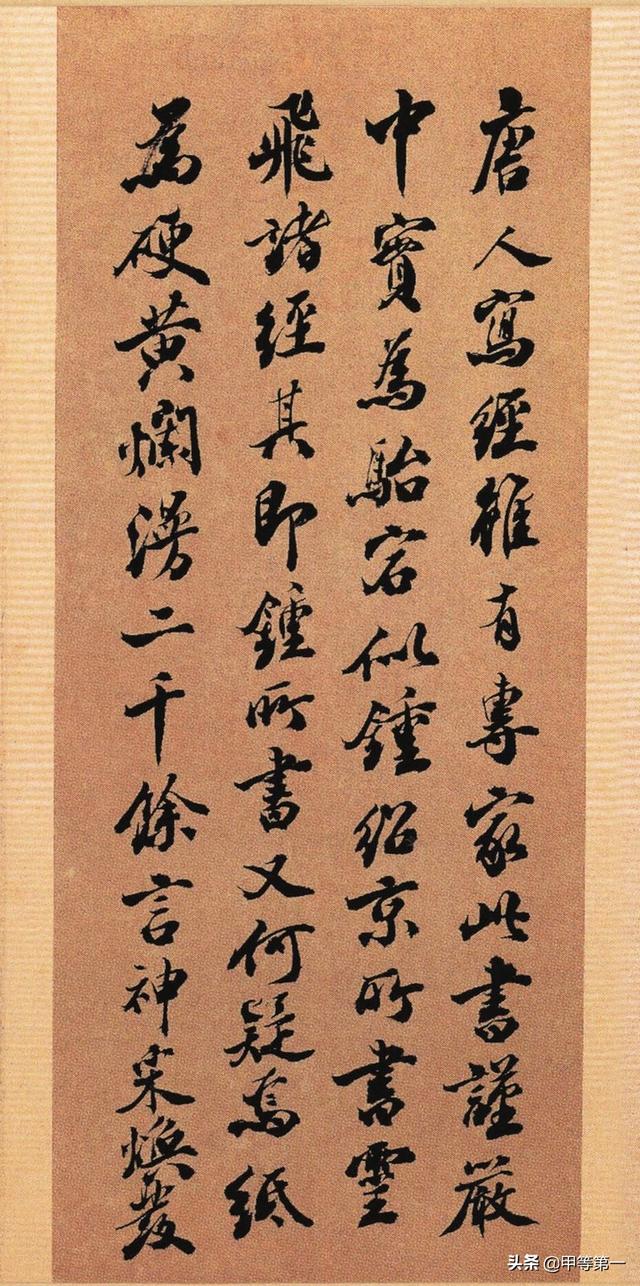 唐人寫經雖有專家此書謹嚴
中實為駘宕似鍾紹京所書靈
飛諸經其即鍾所書又何疑焉紙
為硬黃爛漫二千餘言神采煥發
头条 @甲等第一